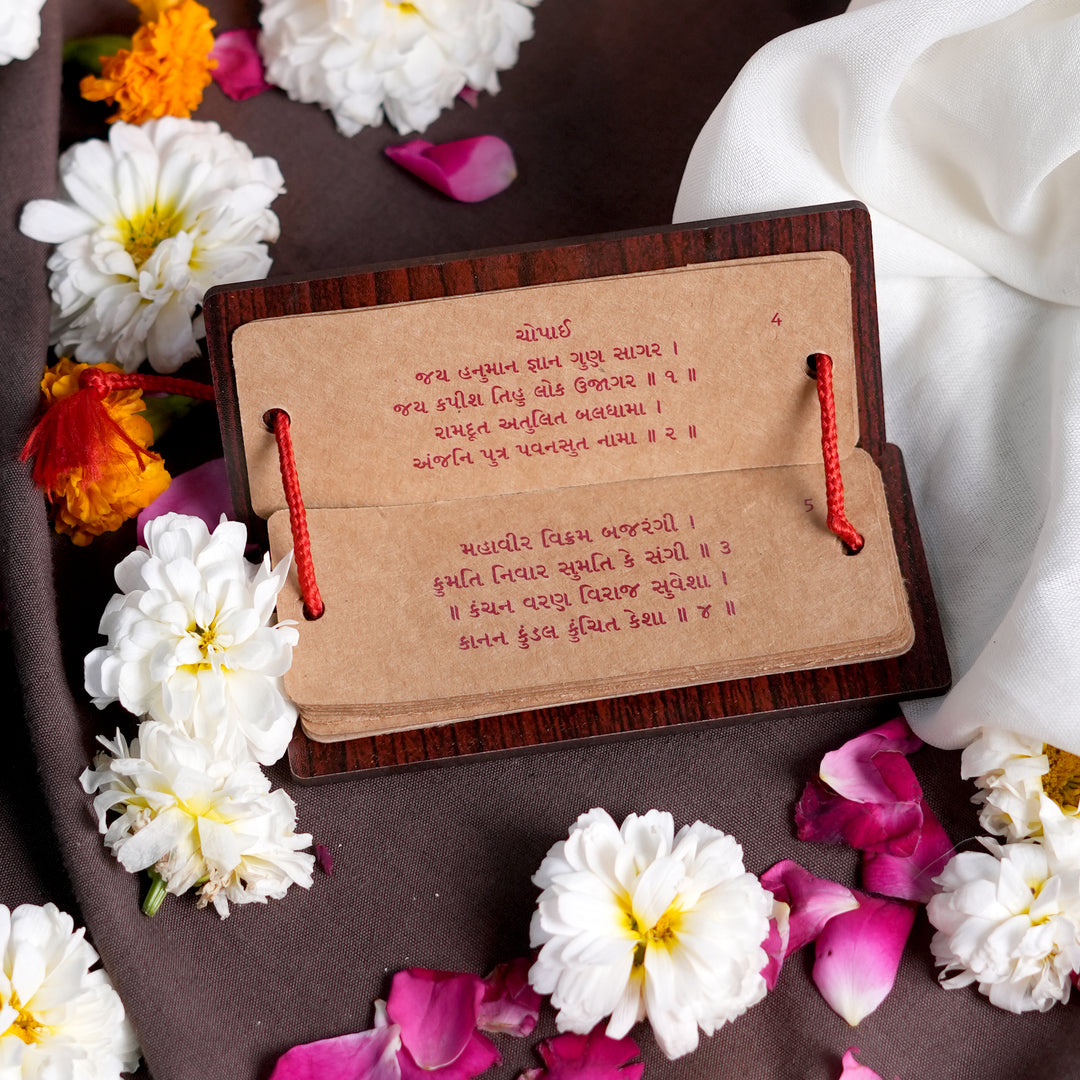 4
ચોપાઈ
જય હનુમાન જ્ઞાન ગુણ સાગર ।
જય કપીશ તિહુ લોક ઉજાગર ॥ ૧ ॥
રામદૂત અતુલિત બલધામા ।
અંજનિ પુત્ર પવનસુત નામા ॥ ૨ ॥
5
મહાવીર વિક્રમ બજરંગી ।
કુમતિ નિવાર સુમતિ કે સંગી ॥ ૩
॥ કંચન વરણ વિરાજ સુવેશા ।
કાનન કુંડલ કુંચિત કેશા ॥ ૪ ॥